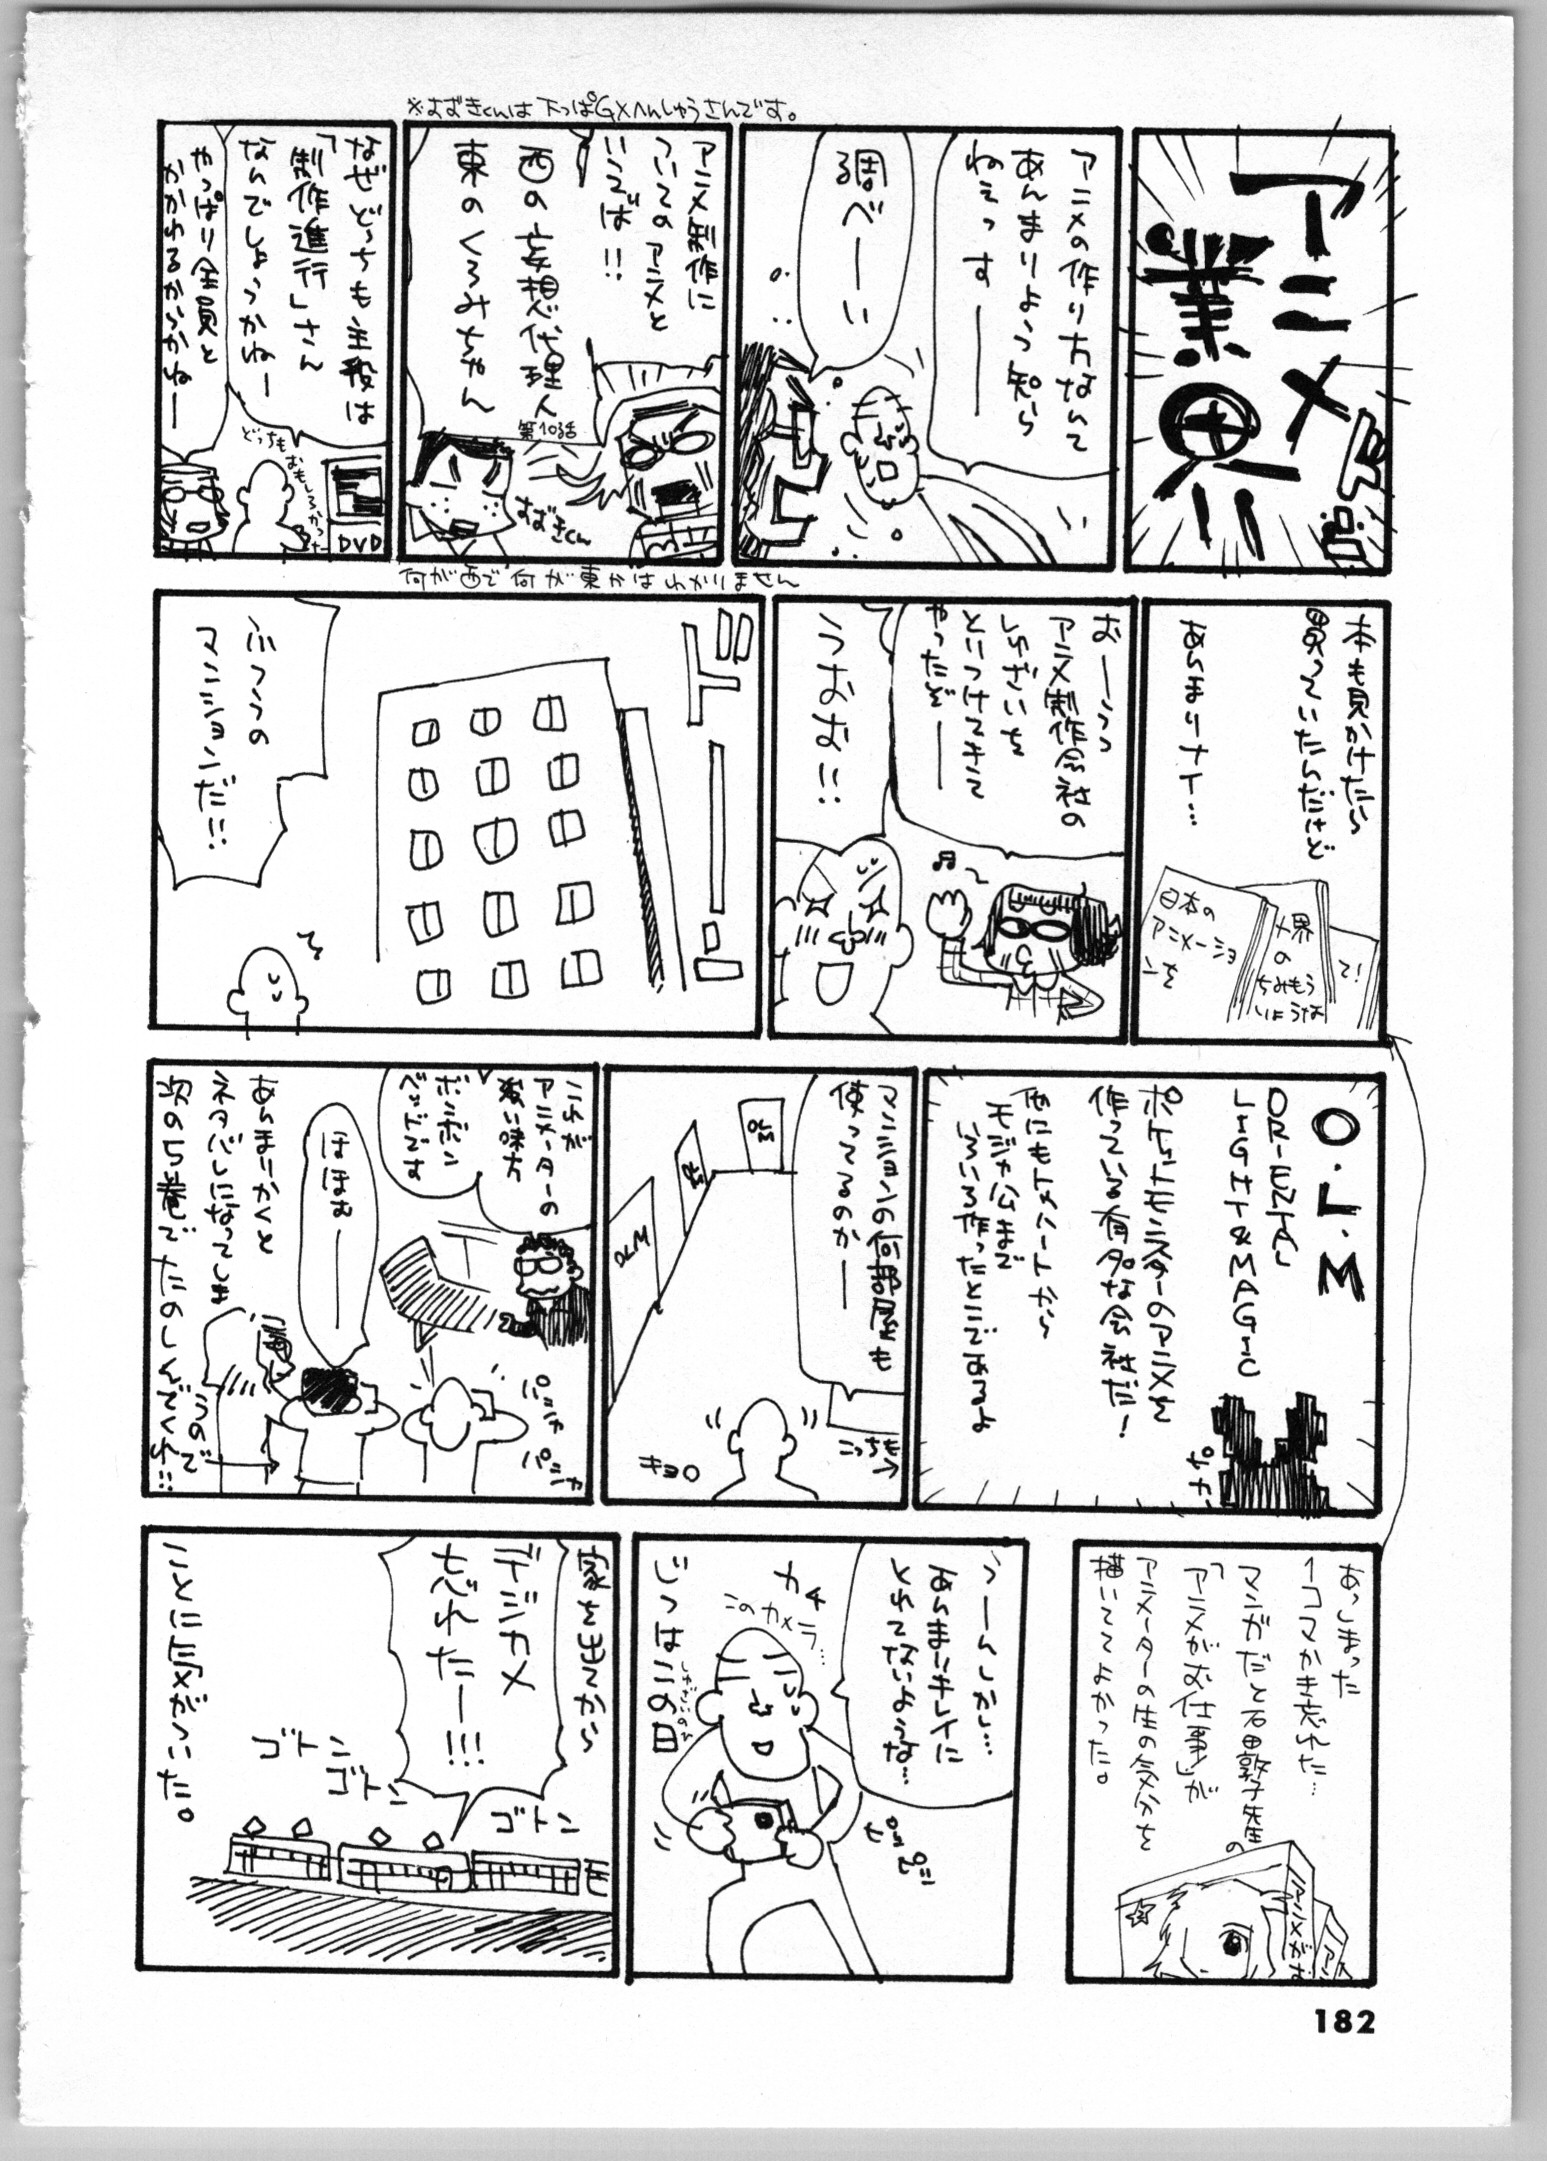 アニメ
業界!!
ドーン
アニメの作り方なんて
あんまりよっつ知ら
ねぇっすーー
調べーーい
※おざきくんは下っぱGXへんしゅうさんです。
アニメ制作に
ついてのアニメと
いうでば!!
西の妄想代理人
第10話
東のくろみちゃん
おざきくん
何が西で何が東かはわかりません
なぜどっちも主役は
「制作進行」さん
なんでしょうかねー
やっぱり全員と
かかわるからかねー
どっちも
おもしろかったー
DVD
本も見かけたら
買っていたんだけど
あんまりナイ…
日本の
アニメーショ
ンを
て!
おーうっ
アニメ制作会社の
しゅざいを
とりつけてきて
やったぞーー
うおお!!
ふつうの
マンションだ!!
O.L.M
ORIENTAL
LIGHT&MAGIC
ポケットモンスターのアニメを
作っている有名な会社だ!
他にもトメハートから
モジャ公まで
いろいろ作ったとこであるよ
ピカ
マンションの何部屋も
使ってるのかー
OLM
OLM
OLM
こっちも→
キョロ
これが
アニメーターの
強い味方
ボンボン
ベッドです
ほほむーー
パシャ
パシャ
あんまりかくと
ネタバレになってしま
うので
次の5巻でたのしんでくれ!!
あっしまった
1コマかき忘れた…
マンガだと石田敦子先生の
「アニメがお仕事」が
アニメーターの生の気分を
描いててよかった。
アニメがお
アニ
うーんしかし…
あんまりキレイに
とれてないような…
カチ
このカメラ…
ピッピッ
じつはこの日
しゅざいのひ
家を出てから
デジカメ
忘れたー!!!
ゴトン
ゴトン
ゴトン
ことに気がついた。
182